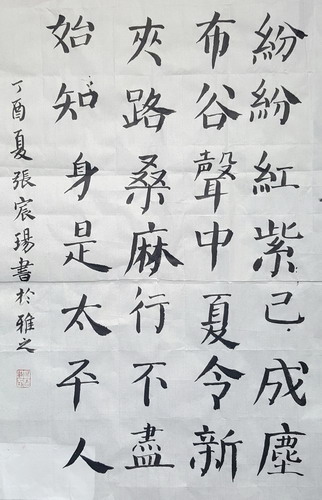 紛紛紅紫已成塵
布谷聲中夏令新
夾路桑麻行不盡
始知身是太平人
丁酉夏張宸瑒書於雅之